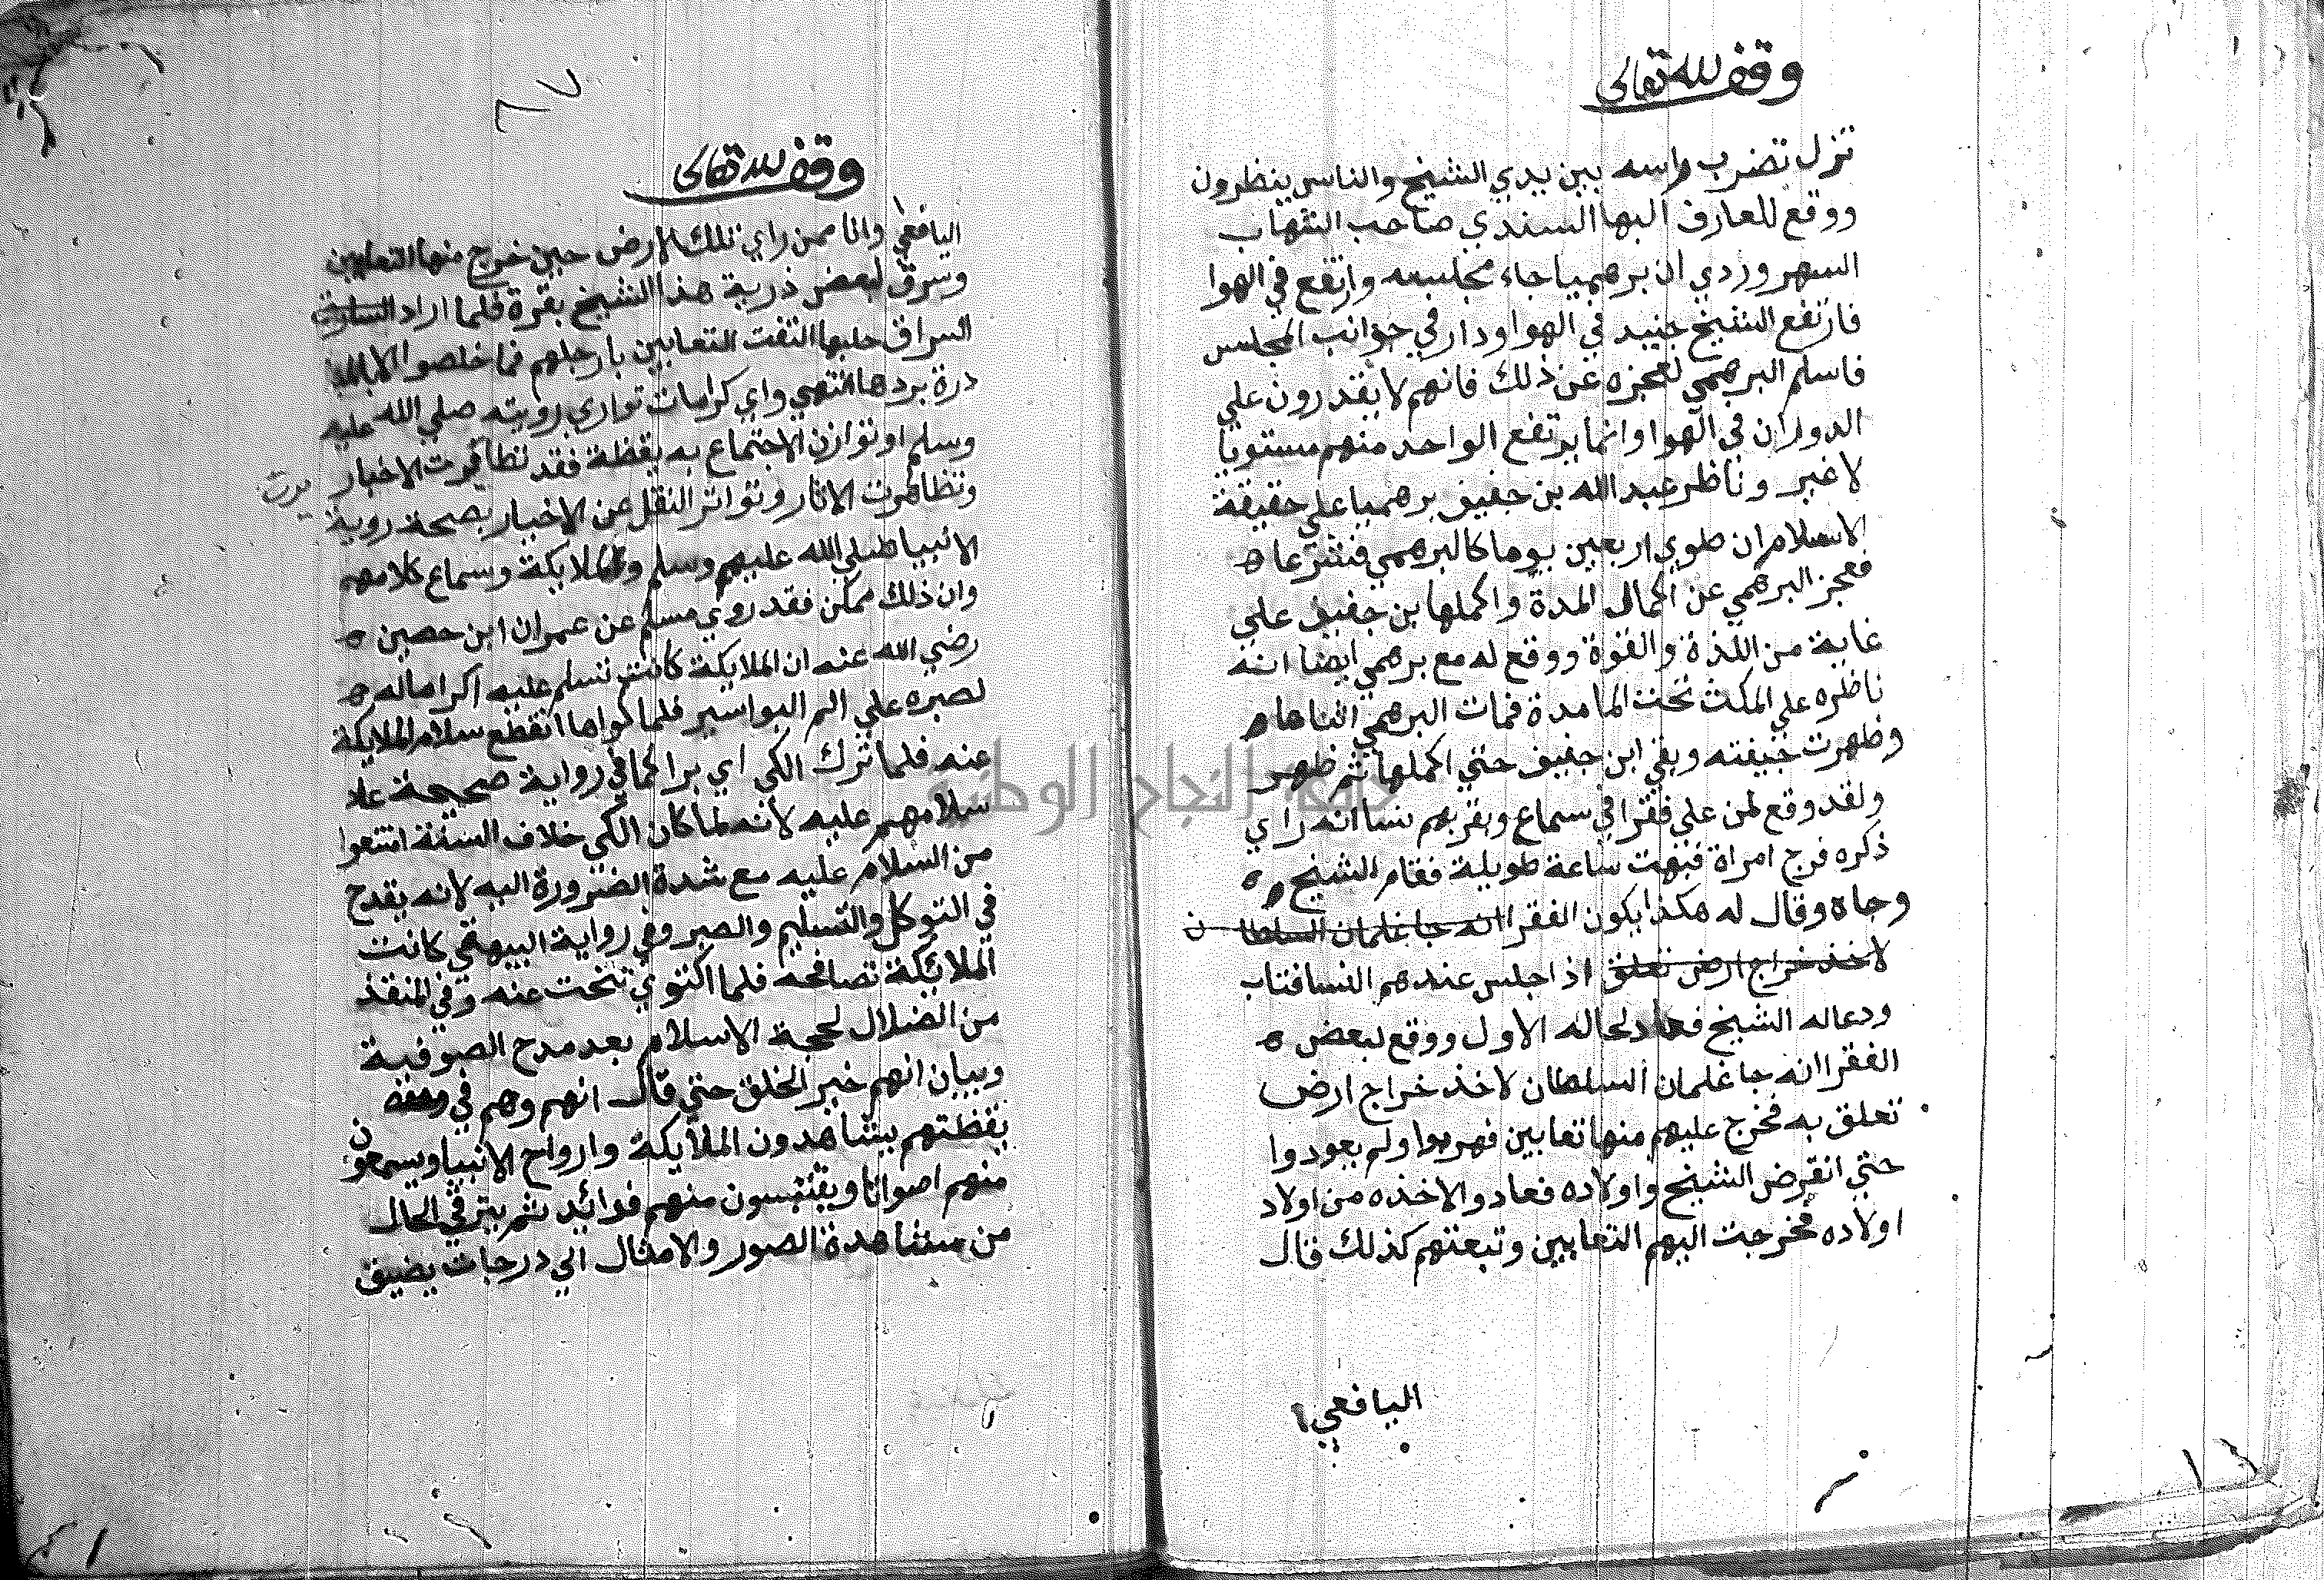 وقف لله تعالى
تنزل تضرب راسه بين يدي الشيخ والناس ينظرون
ووقع للعارف البها السندي صاحب الشهاب
السهروردي ان برهميا جاء مجلسه وارتفع في الهوا
فارتفع الشيخ جنيد في الهوا ودار في جوانب المجلس
فاسلم البرهمي لعجزه عن ذلك فانهم لا يقدرون علي
الدوران في الهوا وانما يرتفع الواحد منهم مستويا
لا غير وناظر عبد الله بن خفيف برهميا علي حقيقة
الاسلام ان طوي اربعين يوما كالبرهمي فشرعا ه
فعجز البرهمي عن اكمال المدة واكملها بن خفيف علي
غاية من اللذة والقوة ووقع له مع برهمي ايضا انه
ناظره علي المكث تحت الما مدة فمات البرهمي اثناها ه
وظهرت جيفته وبقي ابن خفيف حتي اكملها ثم ظهر
ولقد وقع لمن علي فقرا في سماع وبقربهم نسا انه راي
ذكره فرج امراة فبهت ساعة طويلة فقام الشيخ ه ه
وجاه وقال له هكذا يكون الفقرا انه جا غلمان السلطان
لاخذ خراج ارض تعلق اذا جلس عندهم النسا فتاب
ودعاله الشيخ فعاد لحاله الاول ووقع لبعض ه
الفقرا انه جا غلمان السلطان لاخذ خراج ارض
تعلق به فخرج عليهم منها تعابين فهربوا ولم يعودوا
حتي انقرض الشيخ واولاده فعادوا لاخذه من اولاد
اولاده فخرجت اليهم التعابين وتبعتهم كذلك قال
اليافعي
٨٧
وقف لله تعالى
اليافعي وانا ممن راي تلك الارض حين خرج منها التعابين
وسرق لبعض ذرية هذا الشيخ بقرة فلما اراد
السراق حلبها التفت التعابين بارجلهم فما خلصوا الا بالمبا
درة بردها انتهي واي كرامات توازي رويته صلي الله عليه
وسلم او توازن الاجتماع به يقظة فقد تظافرت الاخبار
وتظاهرت الاثار وتواتر النقل عن الاخيار بصحة روية
الانبيا صلي الله عليهم وسلم والملايكة وسماع كلامهم
وان ذلك ممكن فقد روي مسلم عن عمران ابن حصين ه
رضي الله عنه ان الملايكة كانت تسلم عليه اكراما له ه
لصبره علي الم البواسير فلما كواها انقطع سلام الملايكة
عنه فلما ترك الكي اي برا كما في رواية صحيحة عاد
سلامهم عليه لانه لما كان الكي خلاف السنة امتنعوا
من السلام عليه مع شدة الضرورة اليه لانه يقدح
في التوكل والتسليم والصبر وفي رواية البيهقي كانت
الملائكة تصافحه فلما اكتوي تنحت عنه وفي المنقذ
من الضلال لحجة الاسلام بعد مدح الصوفية
وبيان انهم خير الخلق حتي قال انهم وهم في
يقظتهم يشاهدون الملايكة وارواح الانبيا ويسمعون
منهم اصواتا ويقتبسون منهم فوائد ثم يترقي الحال
من مشاهدة الصور والامثال الي درجات يضيق